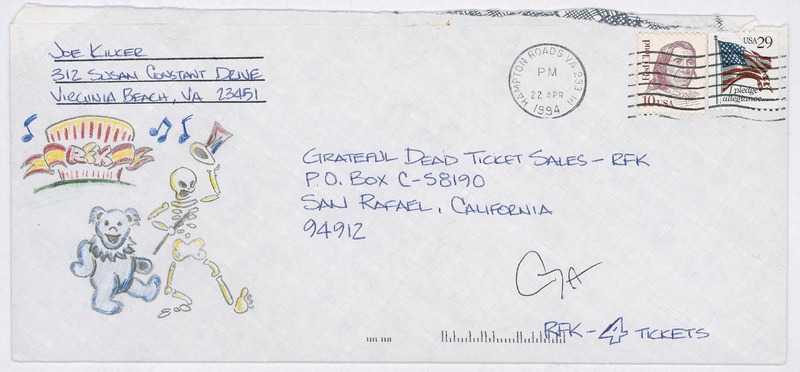 JOE KILKER
312 SUSAN CONSTANT DRIVE
VIRGINIA BEACH, VA 23451
RFK
HAMPTON ROADS VA 233
PM
22 APR
1994
Red Cloud
10 USA
USA 29
I pledge
allegiance...
GRATEFUL DEAD TICKET SALES - RFK
P.O. BOX C-S8190
SAN RAFAEL, CALIFORNIA
94912
RFK - 4 TICKETS